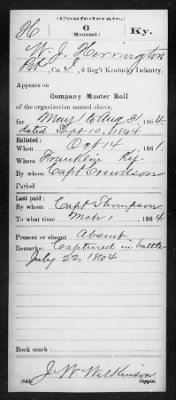 (Confederate.)
H 6 Ky.
(Mounted.)
W. J. Herrington
Pvt, Co. I, 6 Reg't Kentucky Infantry.
Appears on
Company Muster Roll
of the organization named above,
for May 1 to Aug 31, 1864
dated Sept 10, 1864
Enlisted:
When Oct 14, 1861.
Where Franklin Ky.
By whom Capt Crewdson
Period
Last paid:
By whom Capt Thompson
To what time Mch 1, 1864
Present or absent Absent
Remarks: Captured in battle
July 22 1864
Book mark:
J. W. Wilkinson
Copyist.